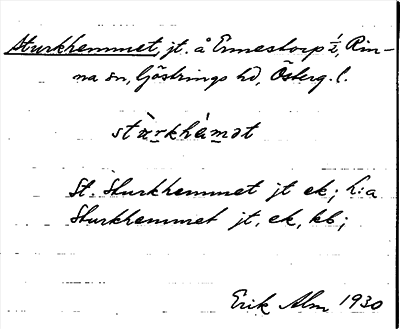 Sturkhemmet, jt. å Ennestorp ½, Rin-
na sn, Göstrings hd, Österg. l.
stùrkhémət
St. Sturkhemmet jt ek; h:a
Sturkhemmet jt, ek, kb;
Erik Alm 1930